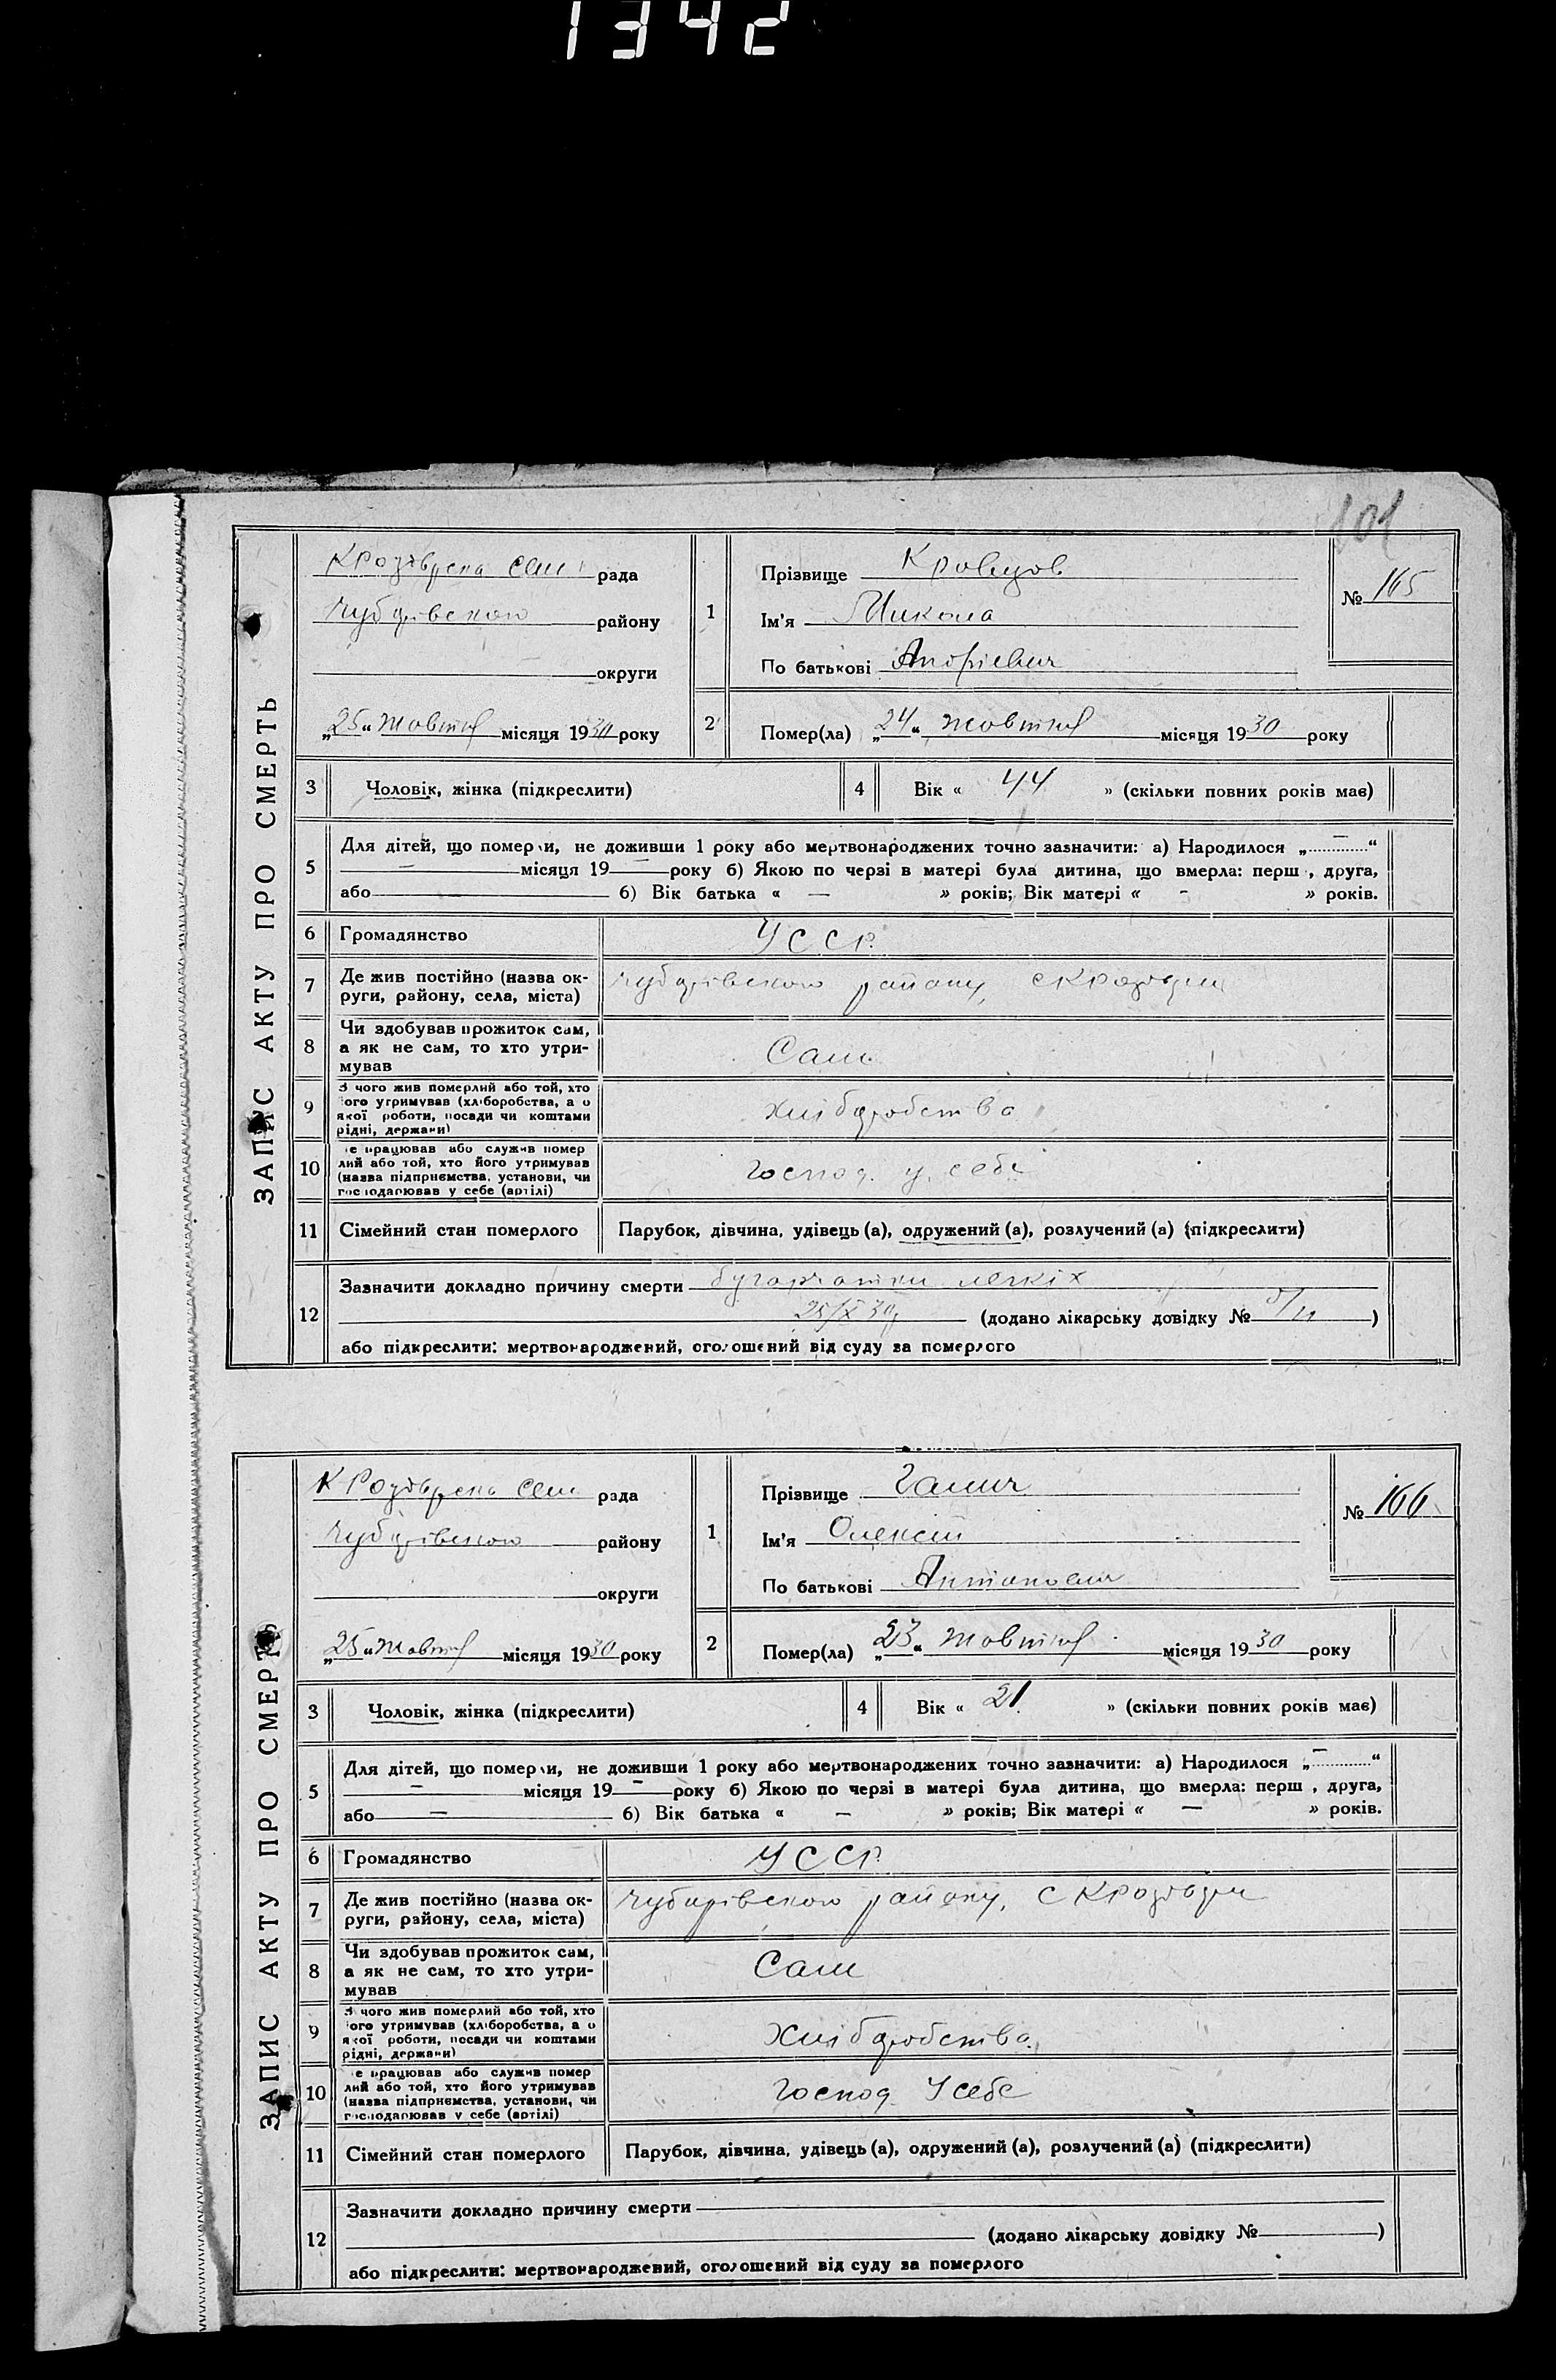 1342
101
ЗАПИС АКТУ ПРО СМЕРТЬ
рада
Чубарівського району
округи
„25“ Жовтня місяця 1930 року
1
Прізвище Кравцов
Ім'я Микола
По батькові Андрієвич
№ 165
2
Помер(ла) „24“ жовтня місяця 1930 року
3 Чоловік, жінка (підкреслити)
4 Вік « 44 » (скільки повних років має)
5 Для дітей, що померли, не доживши 1 року або мертвонароджених точно зазначити: а) Народилося „—“
— місяця 19— року б) Якою по черзі в матері була дитина, що вмерла: перш , друга,
або 6) Вік батька « — » років; Вік матері « - » років.
6 Громадянство УССР
7 Де жив постійно (назва ок-
руги, району, села, міста) Чубарівського району, с
8 Чи здобував прожиток сам,
а як не сам, то хто утри-
мував Сам
9 З чого жив померлий або той, хто
ого утримував (хліборобства, а о
якої роботи, посади чи коштами
рідні, держави) хліборобства
10 е працював або служив помер
лий або той, хто його утримував
(назва підприємства, установи, чи
господарював у себе (артілі) господ. у себе
11 Сімейний стан померлого Парубок, дівчина, удівець (а), одружений (а), розлучений (а) (підкреслити)
12 Зазначити докладно причину смерти легкіх
25/X 30 (додано лікарську довідку № )
або підкреслити: мертвонароджений, оголошений від суду за померлого
ЗАПИС АКТУ ПРО СМЕРТЬ
рада
Чубарівського району
округи
„25“ Жовтня місяця 1930 року
1
Прізвище Галич
Ім'я Олексій
По батькові Антонович
№ 166
2
Помер(ла) „23“ Жовтня місяця 1930 року
3 Чоловік, жінка (підкреслити)
4 Вік « 21 » (скільки повних років має)
5 Для дітей, що померли, не доживши 1 року або мертвонароджених точно зазначити: а) Народилося „—“
— місяця 19— року б) Якою по черзі в матері була дитина, що вмерла: перш , друга,
або — 6) Вік батька « — » років; Вік матері « — » років.
6 Громадянство УССР
7 Де жив постійно (назва ок-
руги, району, села, міста) Чубарівського району, с
8 Чи здобував прожиток сам,
а як не сам, то хто утри-
мував Сам
9 З чого жив померлий або той, хто
ого утримував (хліборобства, а о
якої роботи, посади чи коштами
рідні, держави) Хліборобства
10 е працював або служив помер
лий або той, хто його утримував
(назва підприємства, установи, чи
господарював у себе (артілі) Господ. У себе
11 Сімейний стан померлого Парубок, дівчина, удівець (а), одружений (а), розлучений (а) (підкреслити)
12 Зазначити докладно причину смерти
(додано лікарську довідку № )
або підкреслити: мертвонароджений, оголошений від суду за померлого